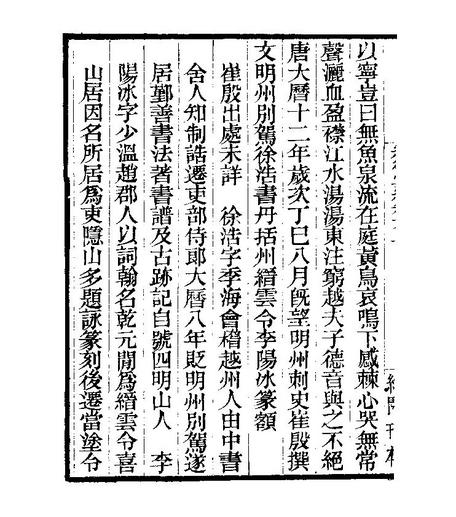 以寧豈曰無魚泉流在庭黃鳥哀鳴下感棘心哭無常
聲灑血盈襟江水湯湯東注窮越夫子德音與之不絕
唐大曆十二年歲次丁巳八月旣望明州刺史崔殷撰
文明州別駕徐浩書丹括州縉雲令李陽冰篆額
崔殷出處未詳　徐浩字季海會稽越州人由中書
舍人知制誥遷吏部侍郎大曆八年貶明州別駕遂
居鄞善書法著書譜及古跡記自號四明山人　李
陽冰字少溫趙郡人以詞翰名乾元閒爲縉雲令喜
山居因名所居爲吏隱山多題詠篆刻後遷當塗令